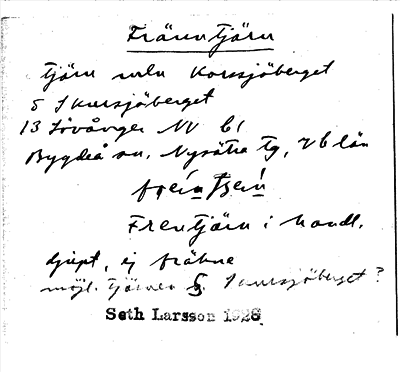 Fränntjärn
tjärn mln Korssjöberget
o Skursjöberget
13 Lövånger NV b1
Bygdeå sn. Nysätra tg, Vb län
Frentjärn i handl.
djupt, ej
möjl. tjärnen S. Skursjöberget?
Seth Larsson 1928